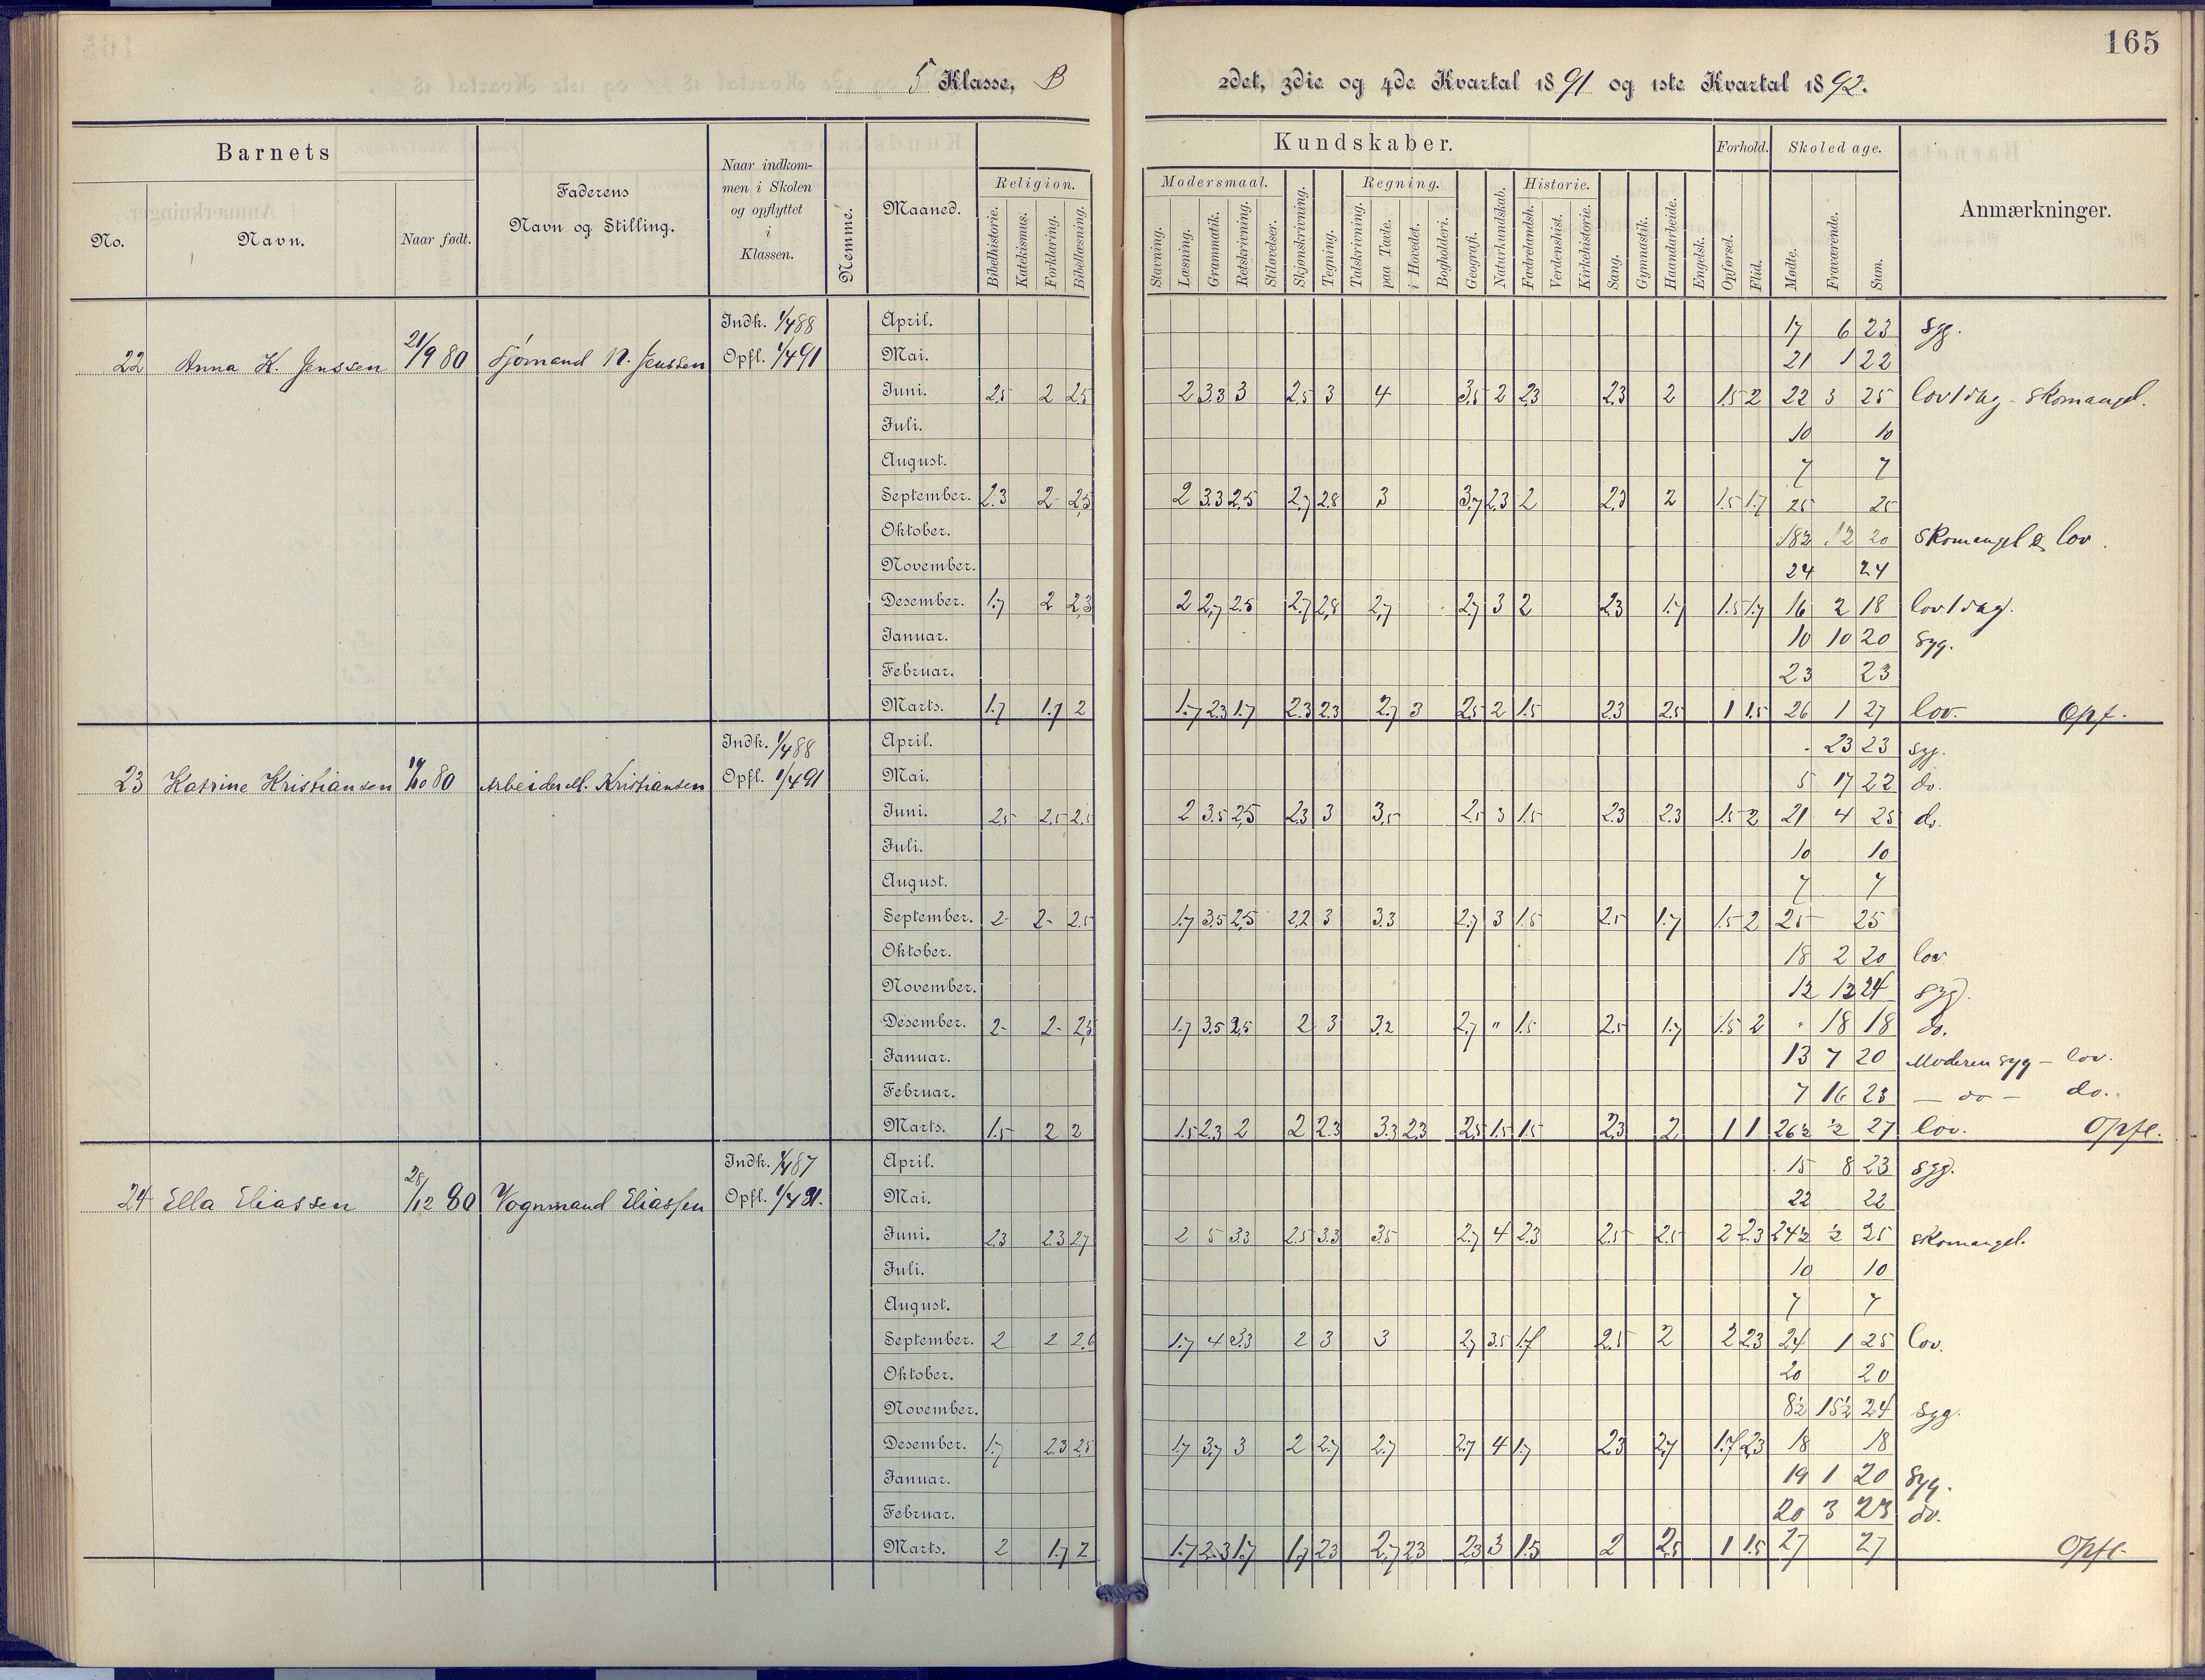 165
5 Klasse, B 2det, 3die og 4de Kvartal 1891 og 1ste Kvartal 1892.
Barnets
No.
Navn.
Naar født.
Faderens
Navn og Stilling.
Naar indkom-
men i Skolen
og opflyttet
i
Klassen.
Nemme.
Maaned.
Kundskaber.
Religion.
Bibelhistorie.
Katekismus.
Forklaring.
Bibellæsning.
Modersmaal.
Stavning.
Læsning.
Grammatik.
Retskrivning.
Stiløvelser.
Skjønskrivning.
Tegning.
Regning.
Talskrivning.
paa Tavle.
i Hovedet.
Bogholderi.
Geografi.
Naturkundskab.
Historie.
Fædrelandsh.
Verdenshist.
Kirkehistorie.
Sang.
Gymnastik.
Haandarbeide.
Engelsk.
Forhold.
Opførsel.
Flid.
Skoledage.
Mødte.
Fraværende.
Sum.
Anmærkninger.
22 Anna K. Jenssen 21/9 80 Sjømand N. Jenssen
Indk. 1/4 88
Opfl. 1/4 91
April. 17 6 23 syg.
Mai. 21 1 22
Juni. 2.5 2 2.5 2 3.3 3 2.5 3 4 3.5 2 2.3 2.3 2 1.5 2 22 3 25 lov 1 dag - skomangel.
Juli. 10 10
August. 7 7
September. 2.3 2 2.5 2 3.3 2.5 2.7 2.8 3 3.7 2.3 2 2.3 2 1.5 1.7 25 25
Oktober. 18½ 1½ 20 skomangel & lov.
November. 24 24
Desember. 1.7 2 2.3 2 2.7 2.5 2.7 2.8 2.7 2.7 3 2 2.3 1.7 1.5 1.7 16 2 18 lov 1 dag.
Januar. 10 10 20 syg.
Februar. 23 23
Marts. 1.7 1.7 2 1.7 2.3 1.7 2.3 2.3 2.7 3 2.5 2 1.5 2.3 2.5 1 1.5 26 1 27 lov. Opf.
23 Katrine Kristiansen 19/10 80 Arbeider M. Kristiansen
Indk. 1/4 88
Opfl. 1/4 91
April. - 23 23 syg.
Mai. 5 17 22 do.
Juni. 2.5 2.5 2.5 2 3.5 2.5 2.3 3 3.5 2.5 3 1.5 2.3 2.3 1.5 2 21 4 25 do.
Juli. 10 10
August. 7 7
September. 2 2 2.5 1.7 3.5 2.5 2.2 3 3.3 2.7 3 1.5 2.5 1.7 1.5 2 25 25
Oktober. 18 2 20 lov
November. 12 12 24 syg.
Desember. 2 2 2.3 1.7 3.5 2.5 2 3 3.2 2.7 " 1.5 2.5 1.7 1.5 2 " 18 18 do.
Januar. 13 7 20 Moderen syg - lov.
Februar. 7 16 23 - do - do.
Marts. 1.5 2 2 1.5 2.3 2 2 2.3 3.3 2.3 2.5 1.5 1.5 2.3 2 1 1 26½ ½ 27 lov. Opfl.
24 Ella Eliassen 28/12 80 Vognmand Eliassen
Indk. 1/4 87
Opfl. 1/4 91.
April. 15 8 23 syg.
Mai. 22 22
Juni. 2.3 2.3 2.7 2 5 3.3 2.5 3.3 3.5 2.7 4 2.3 2.5 2.5 2 2.3 24½ ½ 25 skomangel.
Juli. 10 10
August. 7 7
September. 2 2 2.6 1.7 4 3.3 2 3 3 2.7 3.5 1.7 2.5 2 2 2.3 24 1 25 lov.
Oktober. 20 20
November. 8½ 15½ 24 syg.
Desember. 1.7 2.3 2.5 1.7 3.7 3 2 2.7 2.7 2.7 4 1.7 2.3 2.7 1.7 2.3 18 18
Januar. 19 1 20 syg.
Februar. 20 3 23 do.
Marts. 2 1.7 2 1.7 2.3 1.7 1.7 2.3 2.7 2.3 2.3 3 1.5 2 2.5 1 1.5 27 27 Opfl.